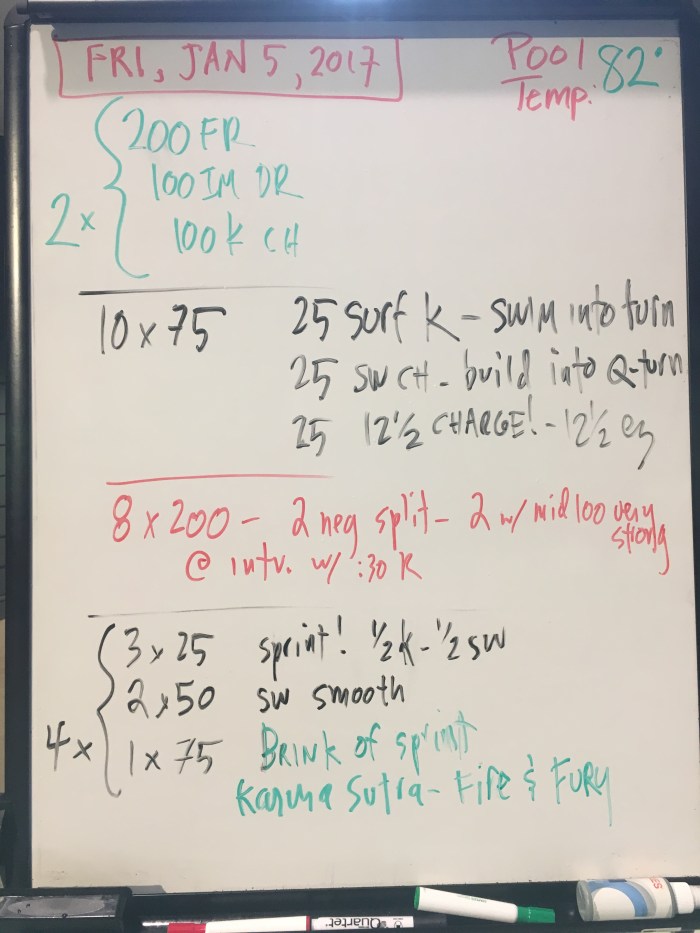 FRI, JAN 5, 2017
Pool Temp: 82°
2x
200 FR
100 IM DR
100 K CH
10 x 75 25 surf K - swim into turn
25 sw CH - build into Q-turn
25 12 1/2 CHARGE! - 12 1/2 ez
8 x 200 - 2 neg split - 2 w/ mid 100 very strong
@ intv. w/ :30 K
4x
3 x 25 sprint! 1/2 k - 1/2 sw
2 x 50 sw smooth
1 x 75 BRINK of sprint
Karma Sutra - Fire & FURY
Quartet